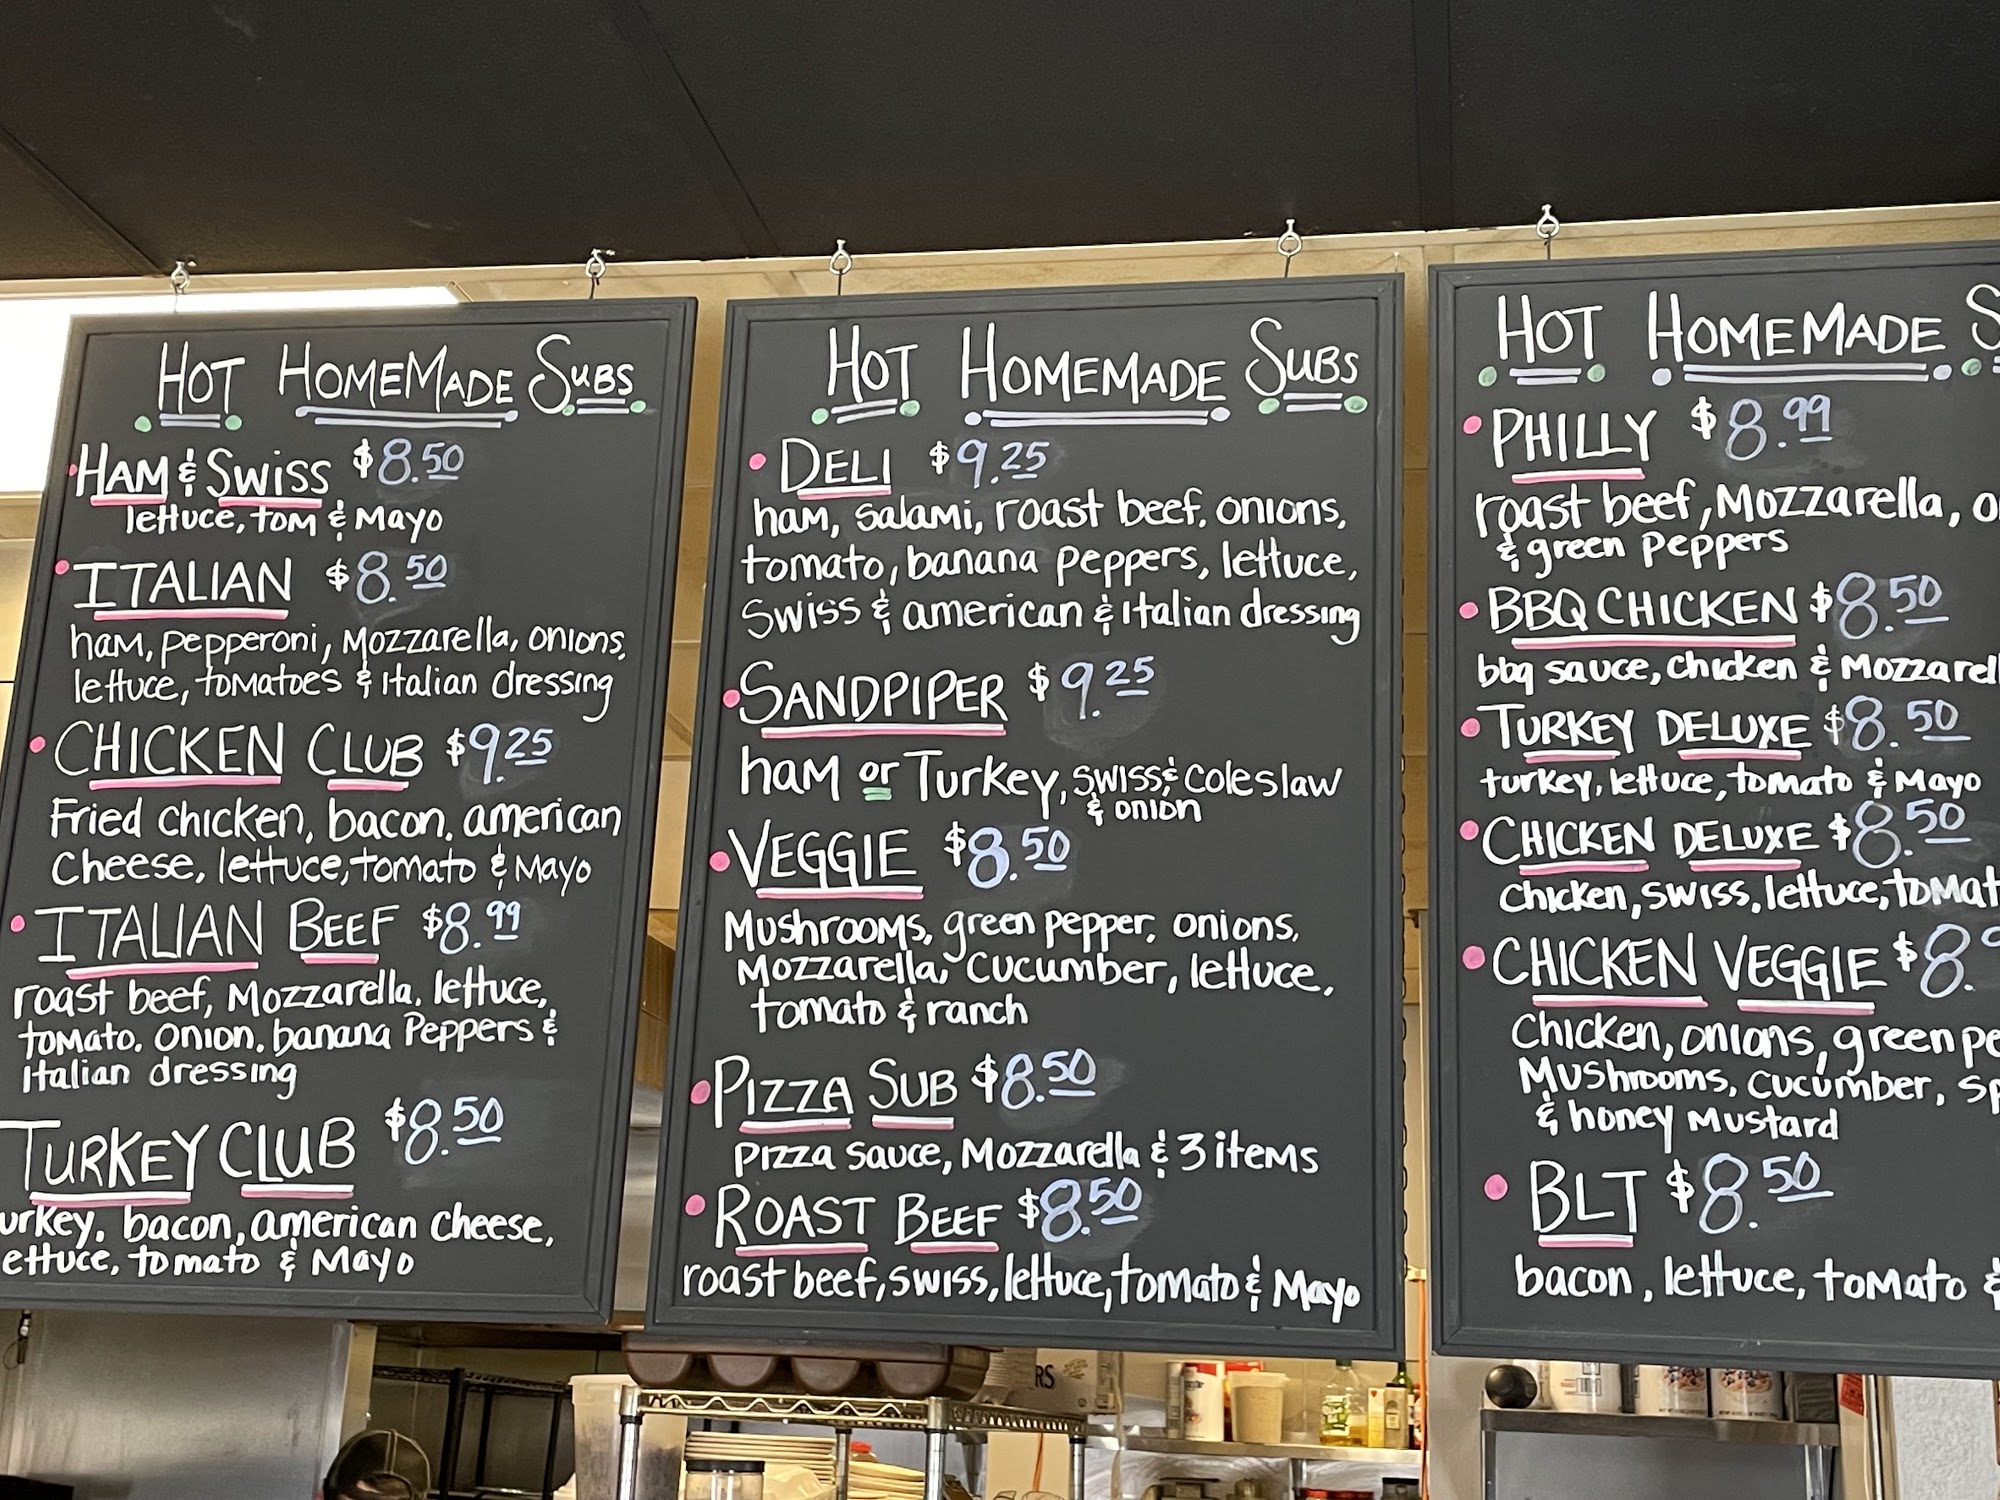 HOT HOMEMADE SUBS
HAM & SWISS $8.50
lettuce, tom & Mayo
ITALIAN $8.50
ham, pepperoni, Mozzarella, onions,
lettuce, tomatoes & italian dressing
CHICKEN CLUB $9.25
Fried chicken, bacon, american
Cheese, lettuce, tomato & Mayo
ITALIAN BEEF $8.99
roast beef, Mozzarella, lettuce,
tomato, onion, banana Peppers &
Italian dressing
TURKEY CLUB $8.50
urkey, bacon, american cheese,
ettuce, tomato & Mayo
HOT HOMEMADE SUBS
DELI $9.25
ham, salami, roast beef, onions,
tomato, banana peppers, lettuce,
Swiss & american & italian dressing
SANDPIPER $9.25
ham or Turkey, swiss & Coleslaw
& onion
VEGGIE $8.50
Mushrooms, green pepper, onions,
Mozzarella, cucumber, lettuce,
tomato & ranch
PIZZA SUB $8.50
pizza sauce, Mozzarella & 3 items
ROAST BEEF $8.50
roast beef, swiss, lettuce, tomato & Mayo
HOT HOMEMADE S
PHILLY $8.99
roast beef, Mozzarella, o
& green peppers
BBQ CHICKEN $8.50
bbq sauce, chicken & Mozzarell
TURKEY DELUXE $8.50
turkey, lettuce, tomato & Mayo
CHICKEN DELUXE $8.50
Chicken, swiss, lettuce, tomat
CHICKEN VEGGIE $8.
Chicken, onions, green pe
Mushrooms, cucumber, sp
& honey Mustard
BLT $8.50
bacon, lettuce, tomato &
RS